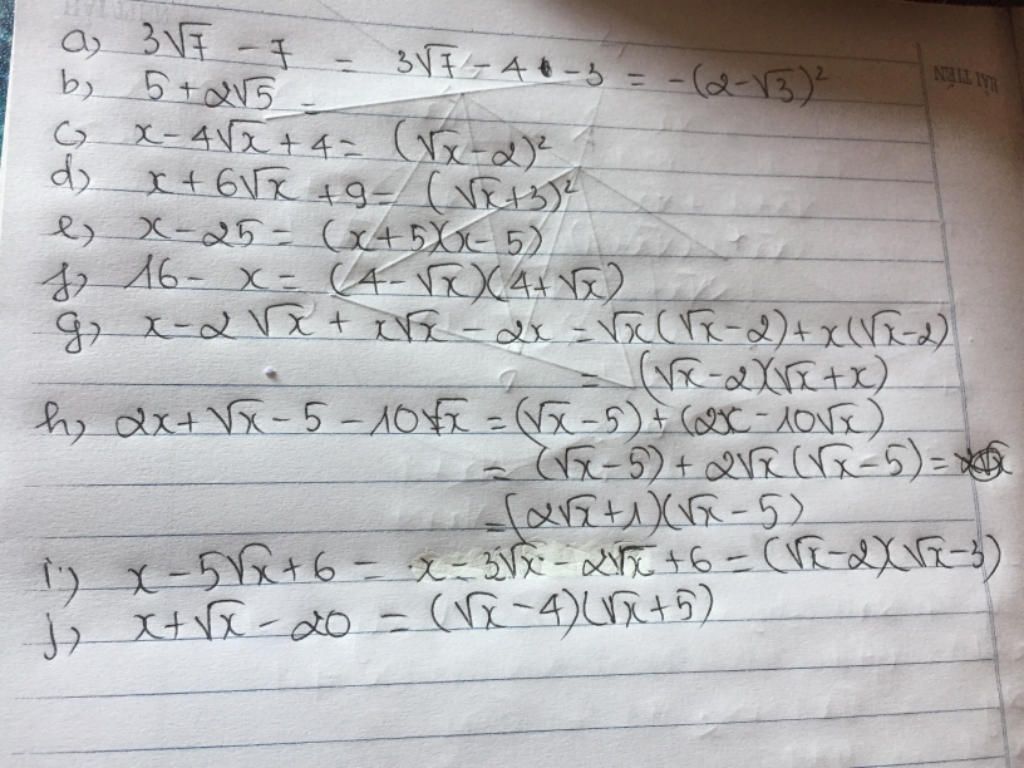 a, 3√7 - 7 = 3√7 - 4 - 3 = -(2-√3)²
b, 5 + 2√5 =
c, x - 4√x + 4 = (√x - 2)²
d, x + 6√x + 9 = (√x + 3)²
e, x - 25 = (x+5)(x-5)
f, 16 - x = (4-√x)(4+√x)
g, x - 2√x + x√x - 2x = √x(√x-2) + x(√x-2)
= (√x-2)(√x+x)
h, 2x + √x - 5 - 10√x = (√x-5) + (2x - 10√x)
= (√x-5) + 2√x(√x-5) =
= (2√x+1)(√x-5)
i, x - 5√x + 6 = x - 3√x - 2√x + 6 = (√x-2)(√x-3)
j, x + √x - 20 = (√x-4)(√x+5)
HẢI TIẾN